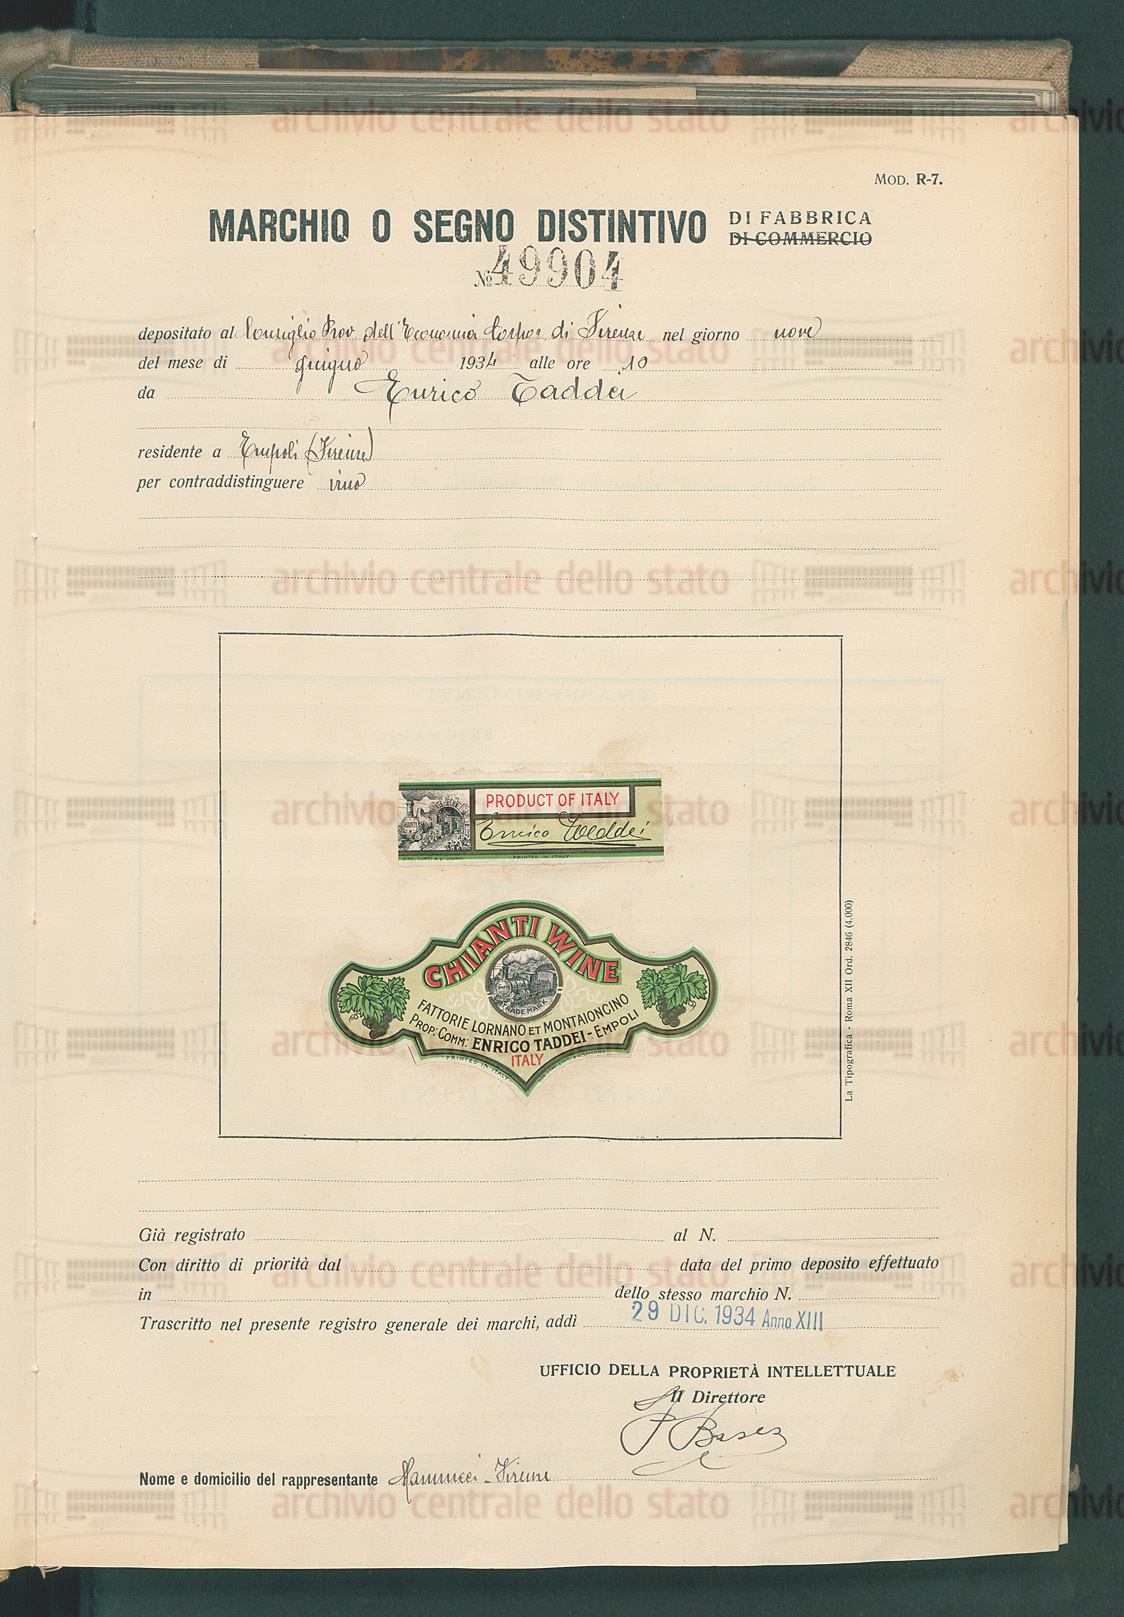 MOD. R-7.
MARCHIO O SEGNO DISTINTIVO DI FABBRICA
DI COMMERCIO
No 49904
depositato al Consiglio Prov. dell'Economia Corpor di Firenze nel giorno nove
del mese di giugno 1934 alle ore 10
da Enrico Taddei
residente a Empoli (Firenze)
per contraddistinguere vino
PRODUCT OF ITALY
Enrico Taddei
PRINTED IN ITALY
CHIANTI WINE
TRADE MARK
FATTORIE LORNANO ET MONTAIONCINO
PROP. COMM. ENRICO TADDEI - EMPOLI
ITALY
PRINTED IN ITALY
La Tipografica - Roma XII Ord. 2846 (4.000)
Già registrato al N.
Con diritto di priorità dal data del primo deposito effettuato
in dello stesso marchio N.
Trascritto nel presente registro generale dei marchi, addì 29 DIC. 1934 Anno XIII
UFFICIO DELLA PROPRIETÀ INTELLETTUALE
Il Direttore
Nome e domicilio del rappresentante Mannucci - Firenze
archivio centrale dello stato